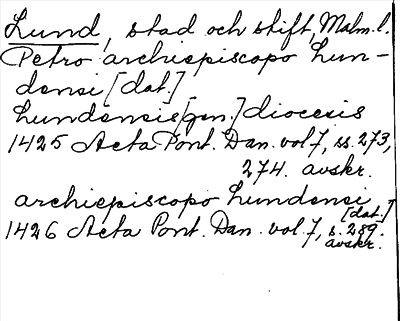 Lund, stad och stift, Malm. l.
Petro archiepiscopo Lun-
densi [dat.]
Lundensis [gen.] diocesis
1425 Acta Pont. Dan. vol 7, ss. 273,
274. avskr.
archiepiscopo Lundensi
[dat.]
1426 Acta Pont. Dan. vol. 7, s. 289.
avskr.